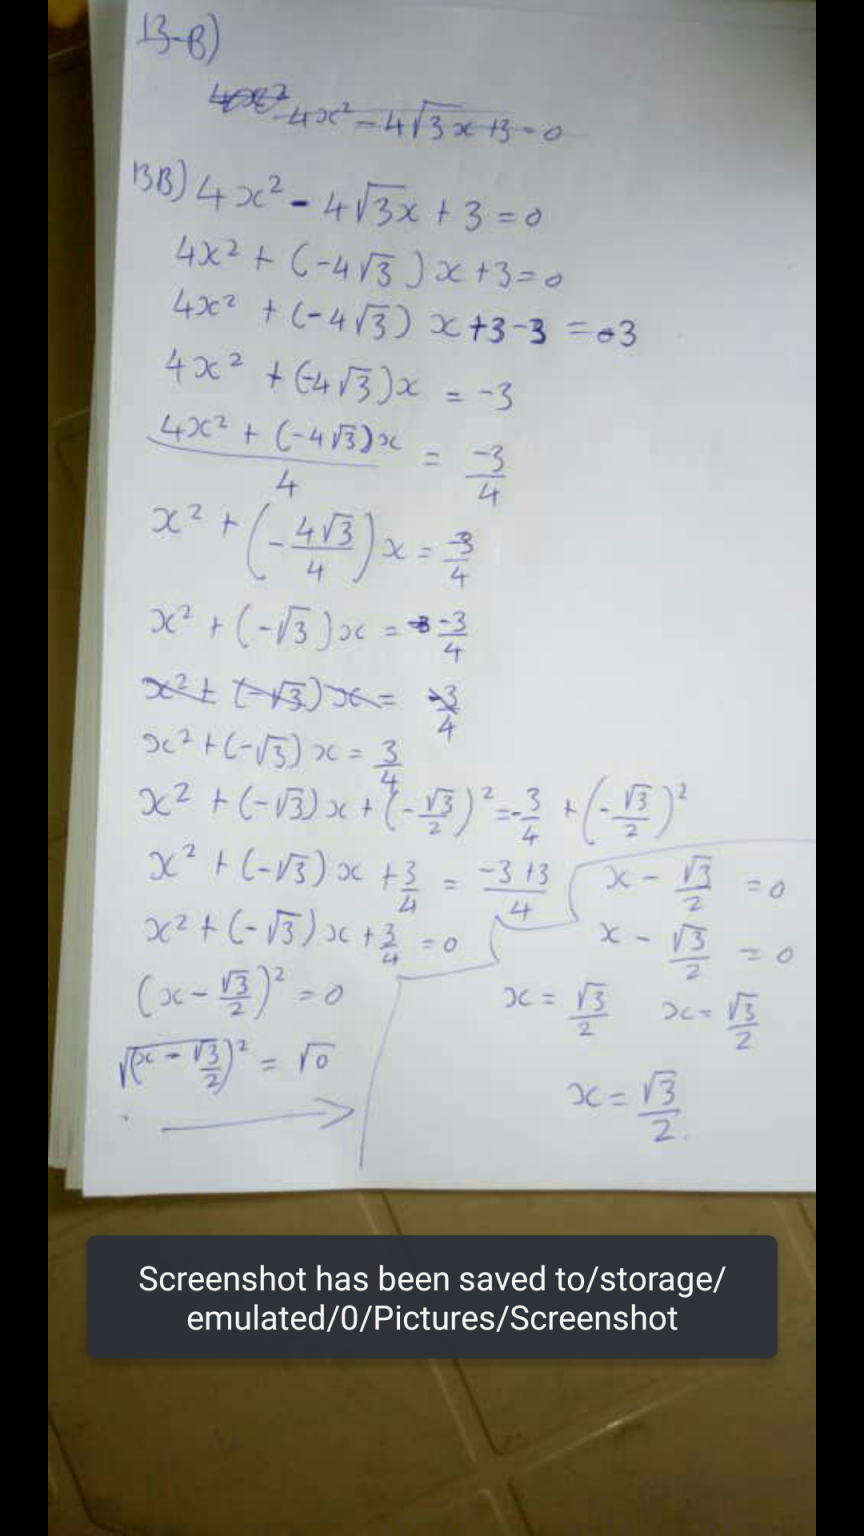 13-B)
4x² 4x² - 4√3x + 3 = 0
13B) 4x² - 4√3x + 3 = 0
4x² + (-4√3)x + 3 = 0
4x² + (-4√3) x + 3 - 3 = 0 - 3
4x² + (-4√3)x = -3
(4x² + (-4√3)x)/4 = -3/4
x² + (-4√3/4)x = -3/4
x² + (-√3)x = -3/4
x² + (-√3)x = -3/4
x² + (-√3)x = 3/4
x² + (-√3)x + (-√3/2)² = -3/4 + (-√3/2)²
x² + (-√3)x + 3/4 = (-3+3)/4
x² + (-√3)x + 3/4 = 0
(x - √3/2)² = 0
√(x - √3/2)² = √0
x - √3/2 = 0
x - √3/2 = 0
x = √3/2 x = √3/2
x = √3/2.
Screenshot has been saved to/storage/
emulated/0/Pictures/Screenshot